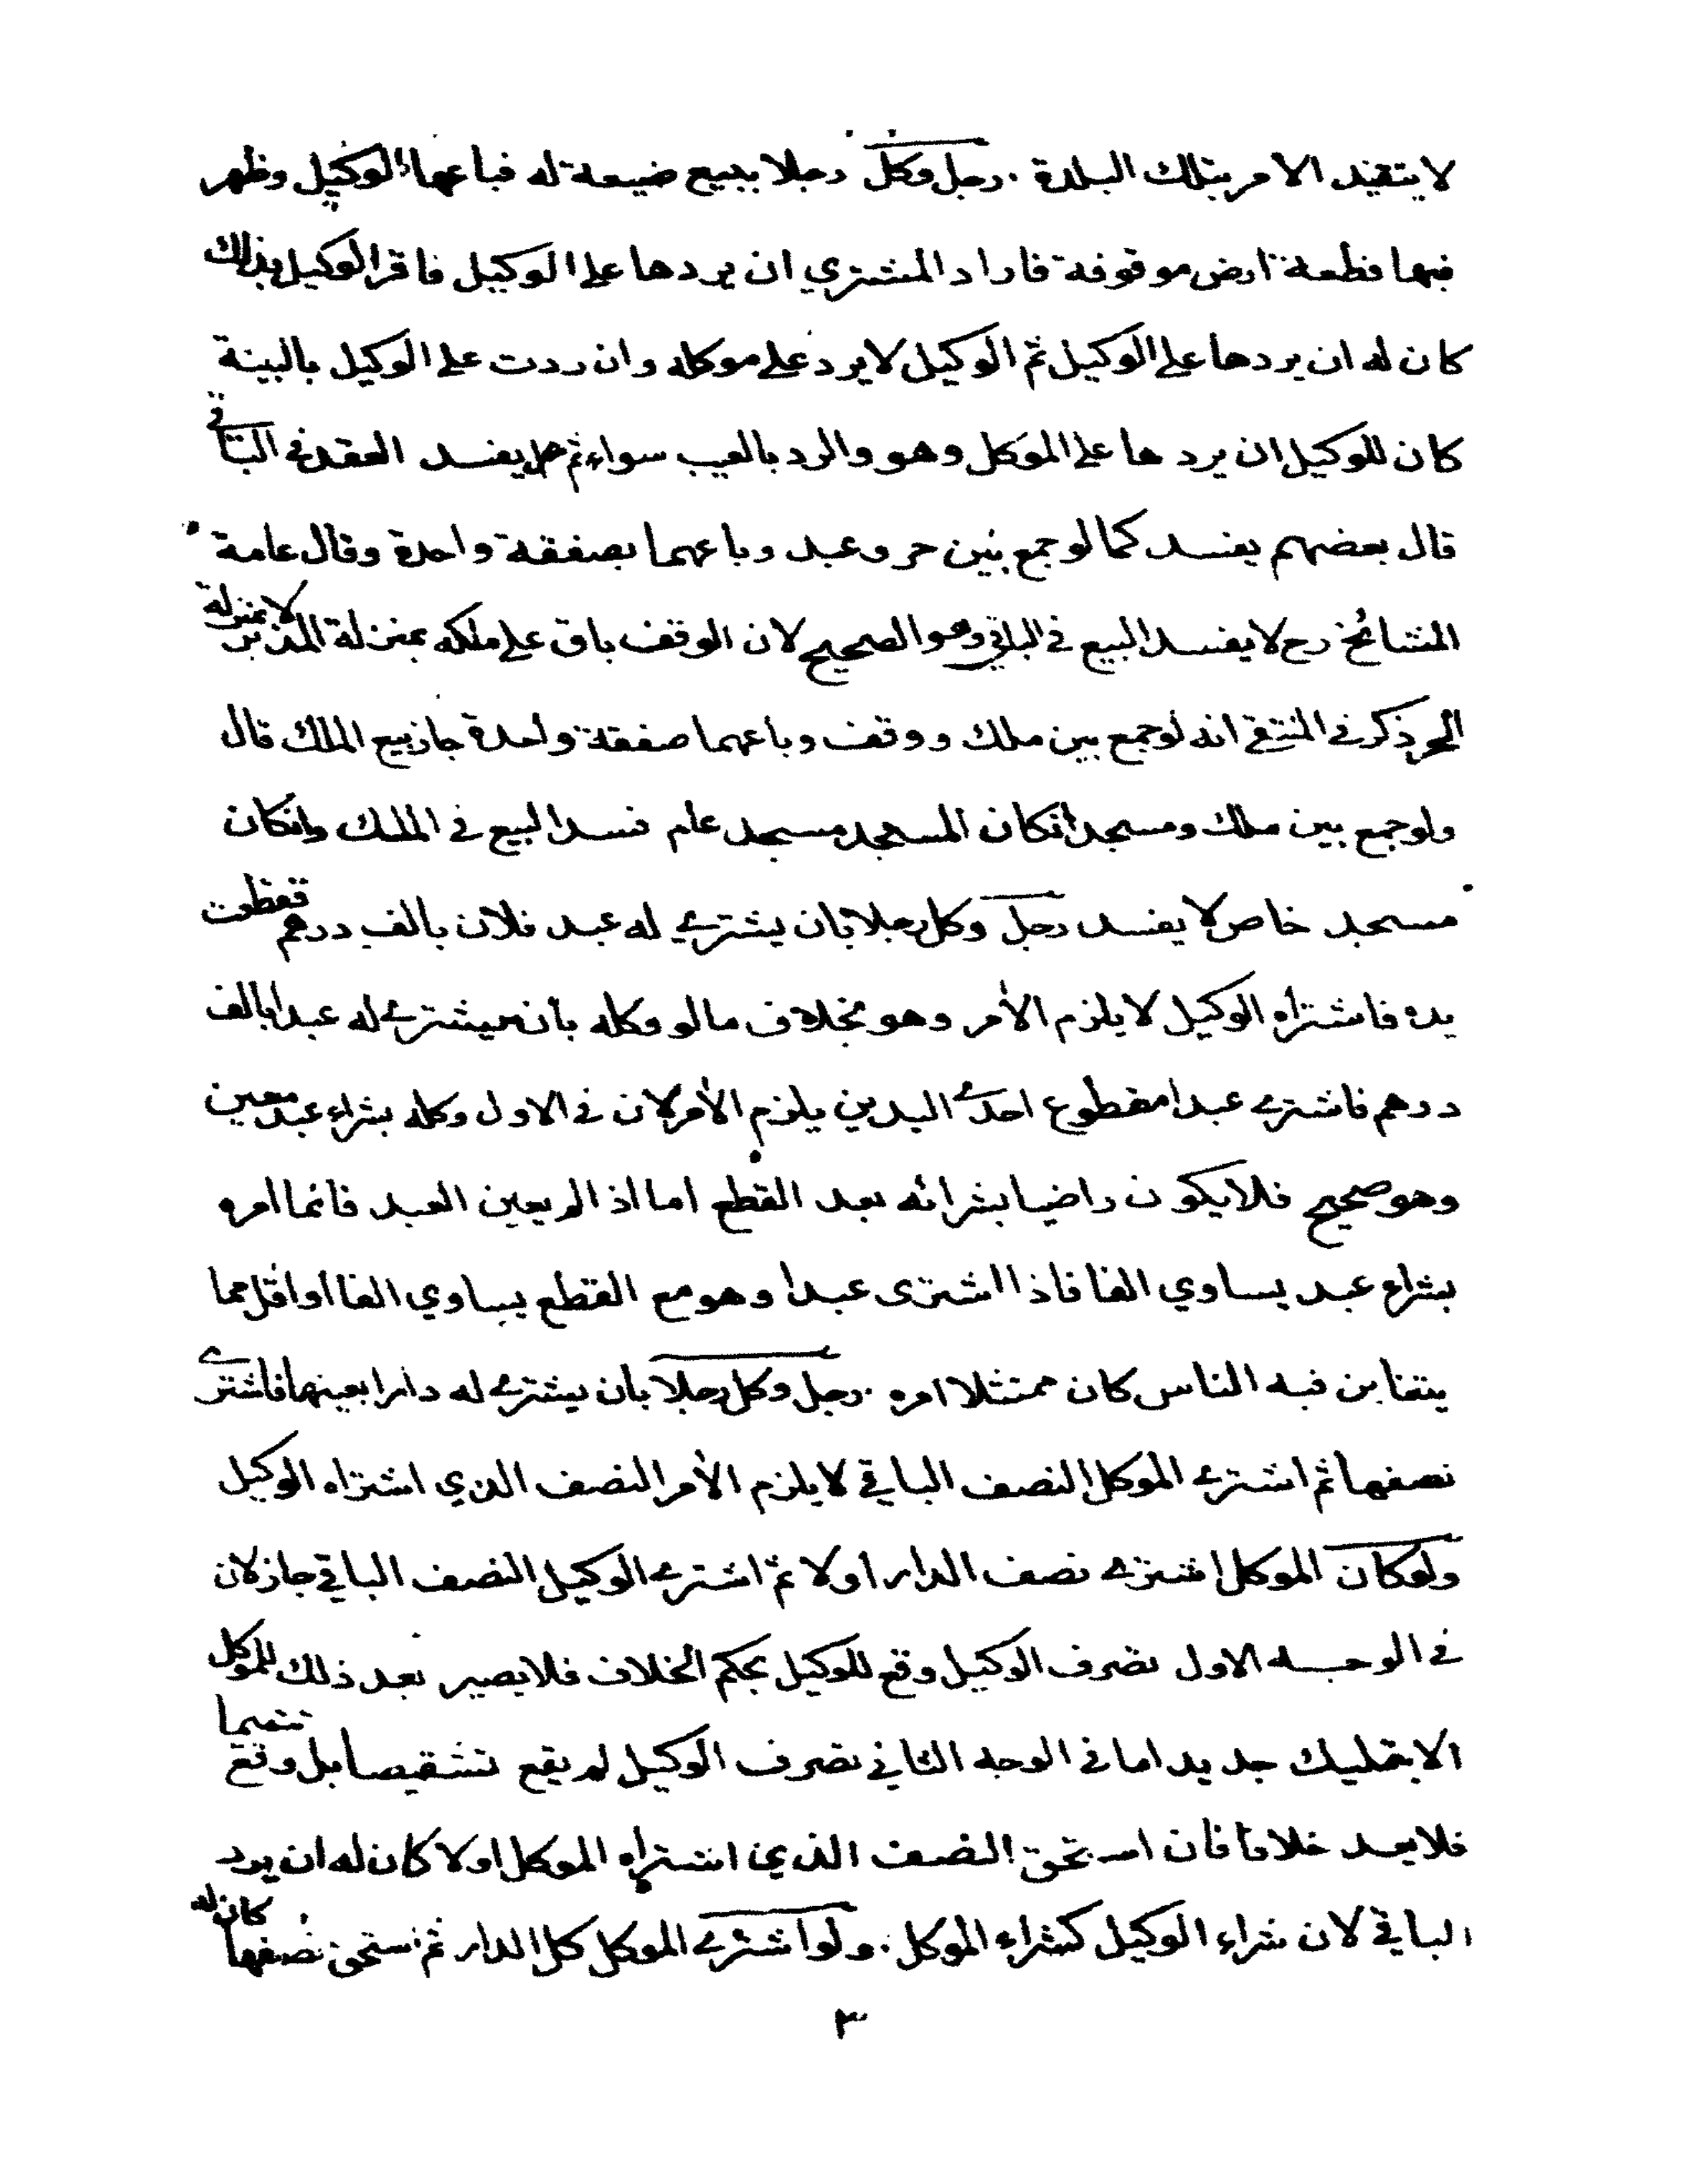 لا يتقيد الامر بتلك البلدة . رجل وكل رجلا ببيع ضيعة له فباعها الوكيل وظهر
فيها قطعة ارض موقوفة فاراد المشتري ان يردها على الوكيل فاقر الوكيل بذلك
كان له ان يردها على الوكيل ثم الوكيل لا يرد على موكله وان ردت على الوكيل بالبينة
كان للوكيل ان يردها على الموكل وهو والرد بالعيب سواء ثم هل يفسد العقد في الباقي
قال بعضهم يفسد كما لو جمع بين حر وعبد وباعهما بصفقة واحدة وقال عامة
المشائخ رح لا يفسد البيع في الباقي وهو الصحيح لان الوقف باق على ملكه بمنزلة المدبر لا بمنزلة
الحر ذكر في المنتقى انه لو جمع بين ملك ووقف وباعهما صفقة واحدة جاز بيع الملك قال
ولو جمع بين ملك ومسجد انكان المسجد مسجد عام فسد البيع في الملك وانكان
مسجد خاص لا يفسد رجل وكل رجلا بان يشتري له عبد فلان بالف درهم فقطعت
يده فاشتراه الوكيل لا يلزم الأمر وهو بخلاف ما لو وكله بأن يشتري له عبدا بالف
درهم فاشترى عبدا مقطوع احدى اليدين يلزم الأمر لان في الاول وكله بشراء عبد معين
وهو صحيح فلا يكون راضيا بشرائه بعد القطع اما اذا لم يعين العبد فانما امره
بشراء عبد يساوي الفا فاذا اشترى عبدا وهو مع القطع يساوي الفا او اقل مما
يتغابن فيه الناس كان ممتثلا امره . رجل وكل رجلا بأن يشتري له دارا بعينها فاشترى
نصفها ثم اشترى الموكل النصف الباقي لا يلزم الأمر النصف الذي اشتراه الوكيل
ولو كان الموكل اشترى نصف الدار اولا ثم اشترى الوكيل النصف الباقي جاز لان
في الوجه الاول تصرف الوكيل وقع للوكيل بحكم الخلاف فلا يصير بعد ذلك للموكل
الا بتمليك جديد اما في الوجه الثاني تصرف الوكيل لم يقع تشقيصا بل وقع تتميما
فلا يعد خلافا فان استحق النصف الذي اشتراه الموكل اولا كان له ان يرد
الباقي لان شراء الوكيل كشراء الموكل . ولو اشترى الموكل كل الدار ثم استحق نصفها كان له
٣